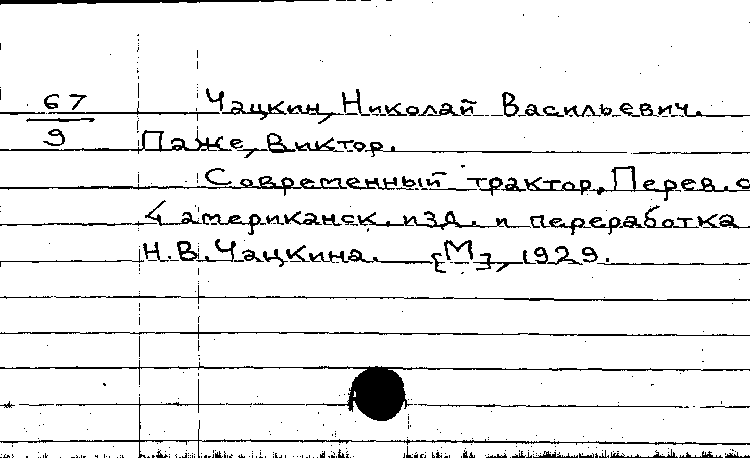 67 Чацкин, Николай Васильевич.
9 Паже, Виктор.
Современный трактор. Перев. с
4 американск. изд. и переработка
Н.В.Чацкина. [М], 1929.